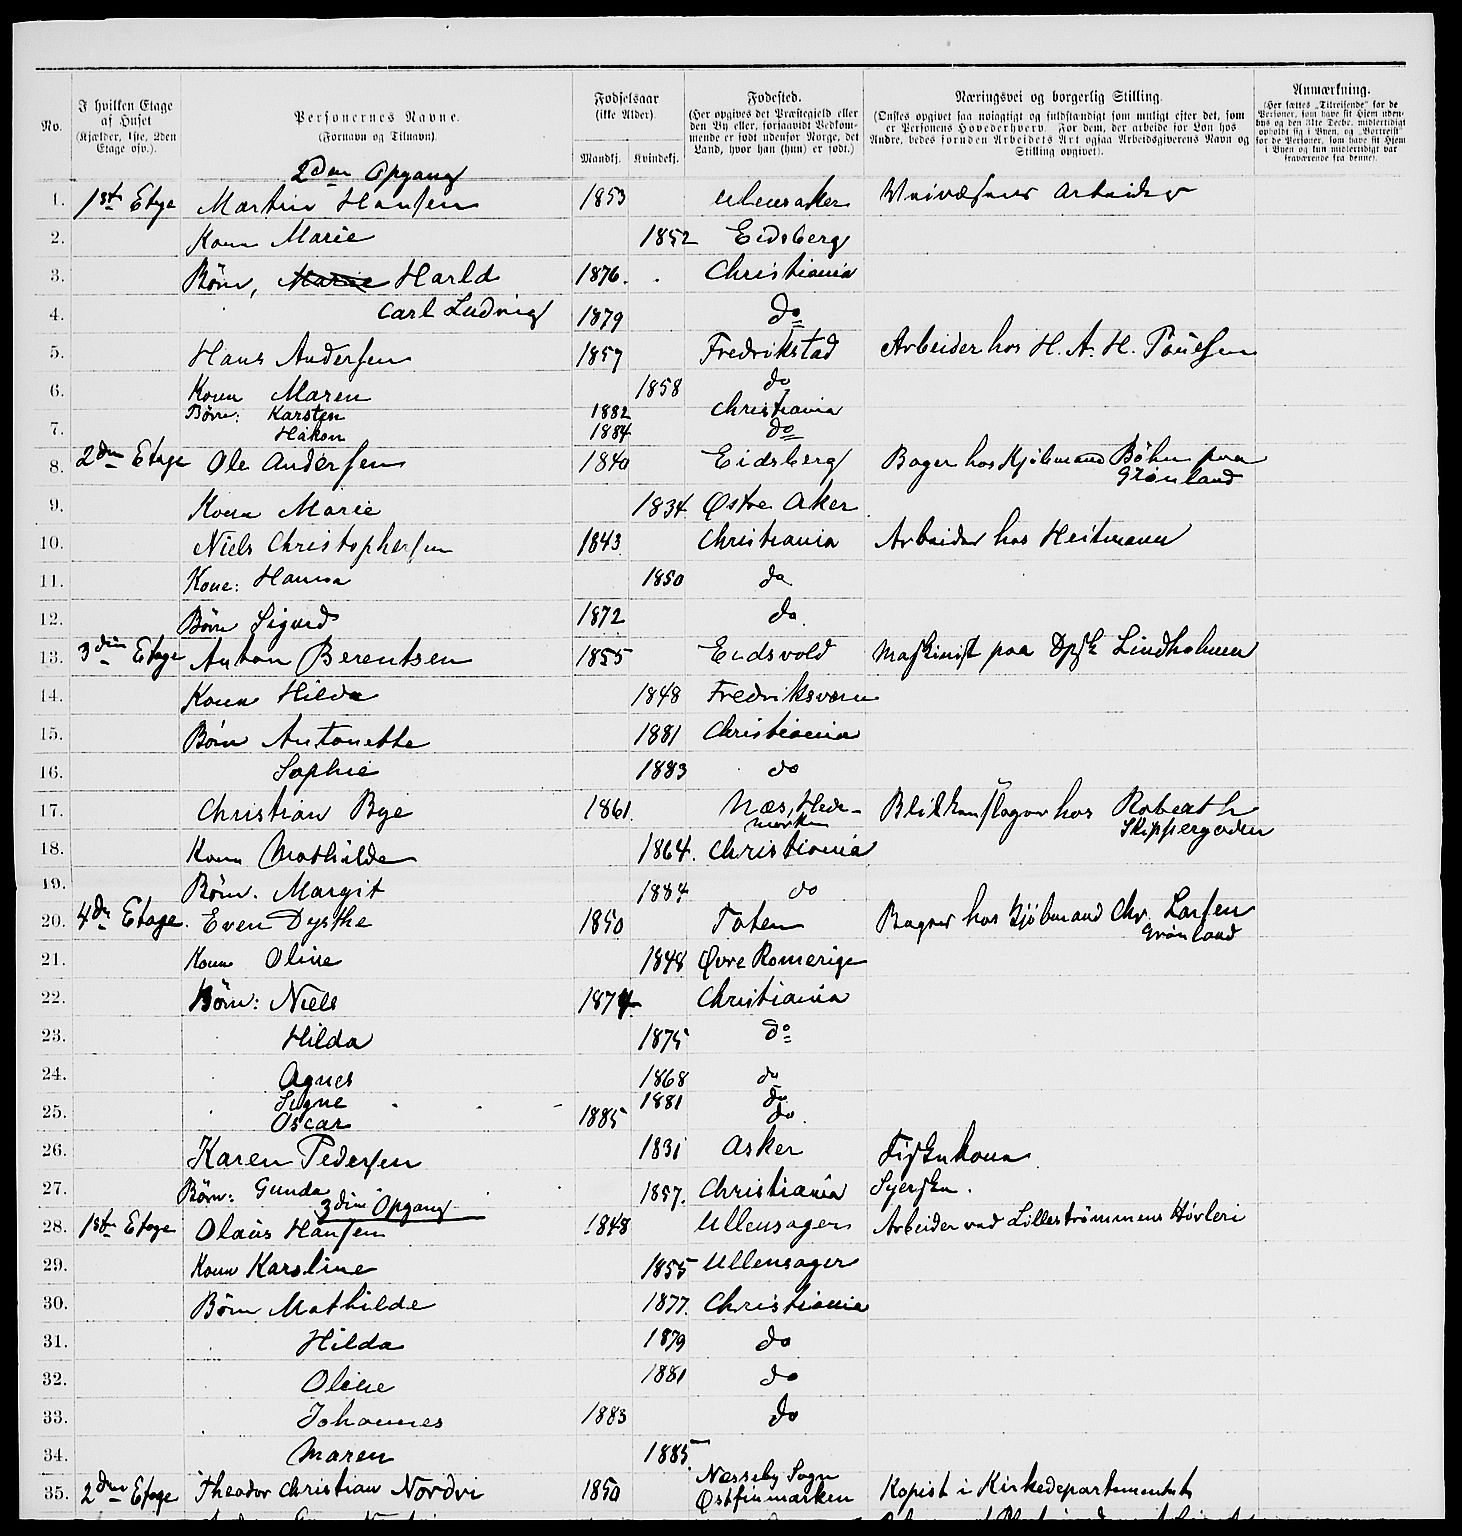 No.
I hvilken Etage af Huset (Kjælder, 1ste, 2den Etage osv.).
Personernes Navne. (Fornavn og Tilnavn).
Fødselsaar (ikke Alder).
Mandkj. Kvindekj.
Fødested. (Her opgives det Præstegjeld eller den By eller, forsaavidt Vedkommende er født udenfor Norge, det Land, hvor han (hun) er født.)
Næringsvei og borgerlig Stilling. (Ønskes opgivet saa nøiagtigt og fuldstændigt som muligt efter det, som er Personens Hovederhverv. For dem, der arbeide for Løn hos Andre, bedes foruden Arbeidets Art ogsaa Arbeidsgiverens Navn og Stilling opgivet).
Anmærkning. (Her sættes „Tilreisende" for de Personer, som have sit Hjem udenbys og den 31te Decbr. midlertidigt opholdt sig i Byen, og „Bortreist" for de Personer, som have sit Hjem i Byen og kun midlertidigt var fraværende fra denne).
2den Opgang
1. 1ste Etage Martin Hansen 1853 Ulensaker Arbeider
2. Kone Marie 1852 Eidsberg
3. Børn, Marie Harld 1876. Christiania
4. Carl Ludvig 1879 do
5. Hans Andersen 1857 Fredrikstad Arbeider hos H. A. H. Poulsen
6. Kone Maren 1858 do
Børn: Karsten 1882 Christiania
7. Håkon 1884 do
8. 2den Etage Ole Andersen 1840 Eidsberg Bager hos Kjøbmand Bøhn paa
Grønland
9. Kone Marie 1834 Østre Aker
10. Niels Christophersen 1843 Christiania Arbeider hos Heitmann
11. Kone: Hanna 1850 do
12. Børn Sigurd 1872 do.
13. 3die Etage Anton Berentsen 1855 Eidsvold Maskinist paa Dpsk Lindholmen
14. Kone Hilda 1848 Fredriksværn
15. Børn Antonette 1881 Christiania
16. Sophie 1883 do
17. Christian Bye 1861. Næs, Hede-
marken Blikkenslager hos Robert
Skippergaden
18. Kone Mathilde 1864. Christiania
19. Børn. Margit 1884 do
20. 4de Etage. Even Dysthe 1850 Toten Bager hos Kjøbmand Chr. Larsen
Grønland
21. Kone Oline 1848 Øvre Romerige
22. Børn: Niels 1874 Christiania
23. Hilda 1875 do
24. Agnes 1868 do
Signe 1881 do
25. Oscar 1885 do
26. Karen Pedersen 1831 Asker Fiskekone
27. Børn: Gunda 1857. Christiania Syerske.
3die Opgang
28. 1ste Etage Olaus Hansen 1848 Ullensager Arbeider ved Lillestrømmens Høvleri
29. Kone Karoline 1855 Ullensager
30. Børn Mathilde 1877. Christiania
31. Hilda 1879 do
32. Oline 1881 do
33. Johannes 1883 do
34. Maren 1885
35. 2den Etage Theodor Christian Nordvi 1850 Næsseby Sogn
Østfinmarken Kopist i Kirkedepartementet